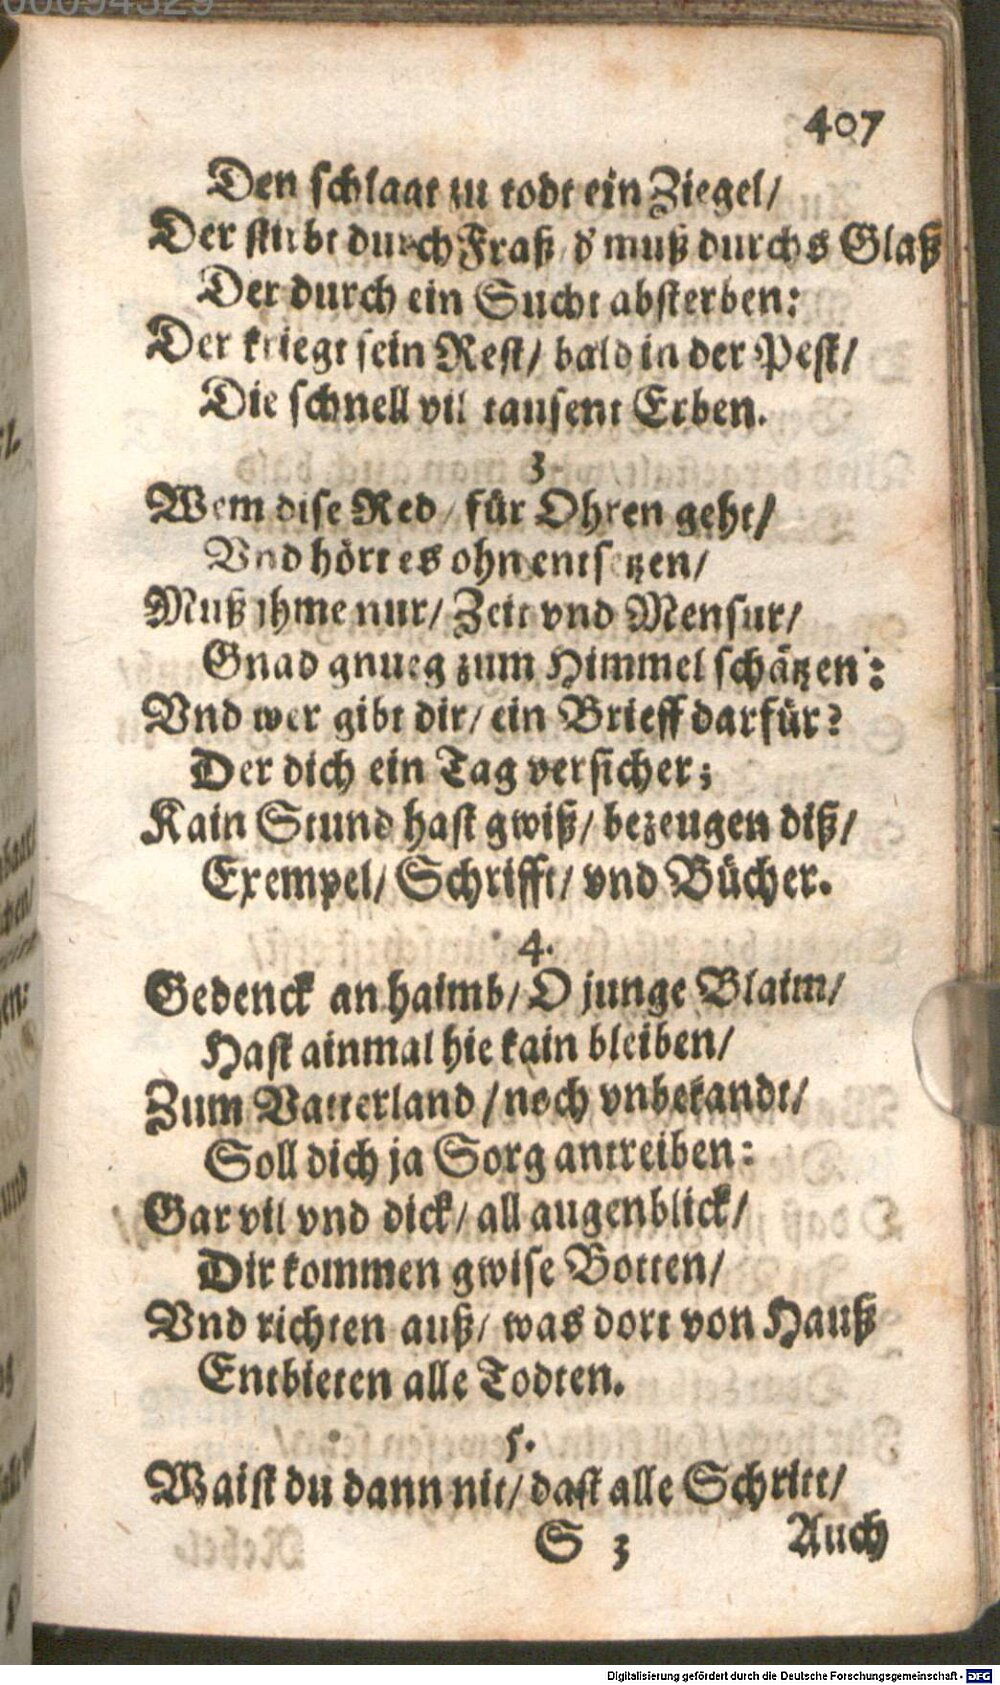 407
Den schlagt zu todt ein Ziegel/
Der stirbt durch Fraß/ d' muß durchs Glaß
Der durch ein Sucht absterben:
Der kriegt sein Rest/ bald in der Pest/
Die schnell vil tausent Erben.
3
Wem dise Red/ für Ohren geht/
Vnd hört es ohn entsetzen/
Muß ihme nur/ Zeit vnd Mensur/
Gnad gnueg zum Himmel schätzen:
Vnd wer gibt dir/ ein Brieff darfür?
Der dich ein Tag versicher;
Kain Stund hast gwiß/ bezeugen diß/
Exempel/ Schrifft/ vnd Bücher.
4.
Gedenck an haimb/ O junge Blaim/
Hast ainmal hie kain bleiben/
Zum Vatterland/ noch vnbekandt/
Soll dich ja Sorg antreiben:
Gar vil vnd dick/ all augenblick/
Dir kommen gwise Botten/
Vnd richten auß/ was dort von Hauß
Entbieten alle Todten.
5.
Waist du dann nit/ dast alle Schritt/
S 3 Auch
Digitalisierung gefördert durch die Deutsche Forschungsgemeinschaft - DFG